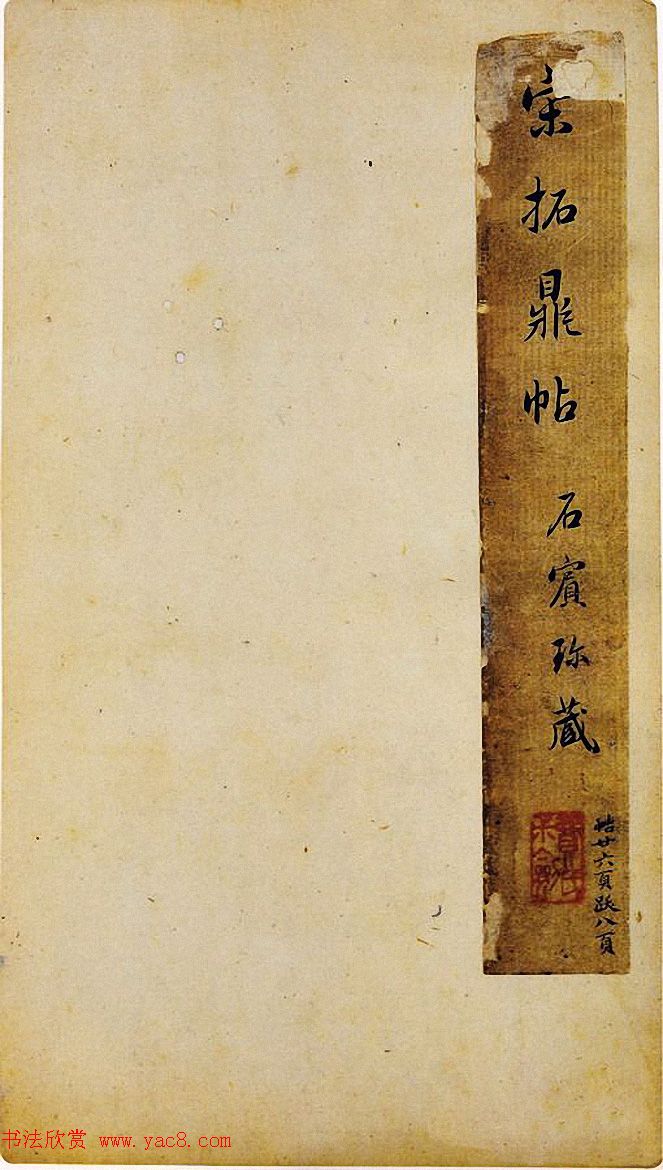 宋拓鼎帖
石賓珎藏
帖廿六頁跋八頁
书法欣赏 www.yac8.com